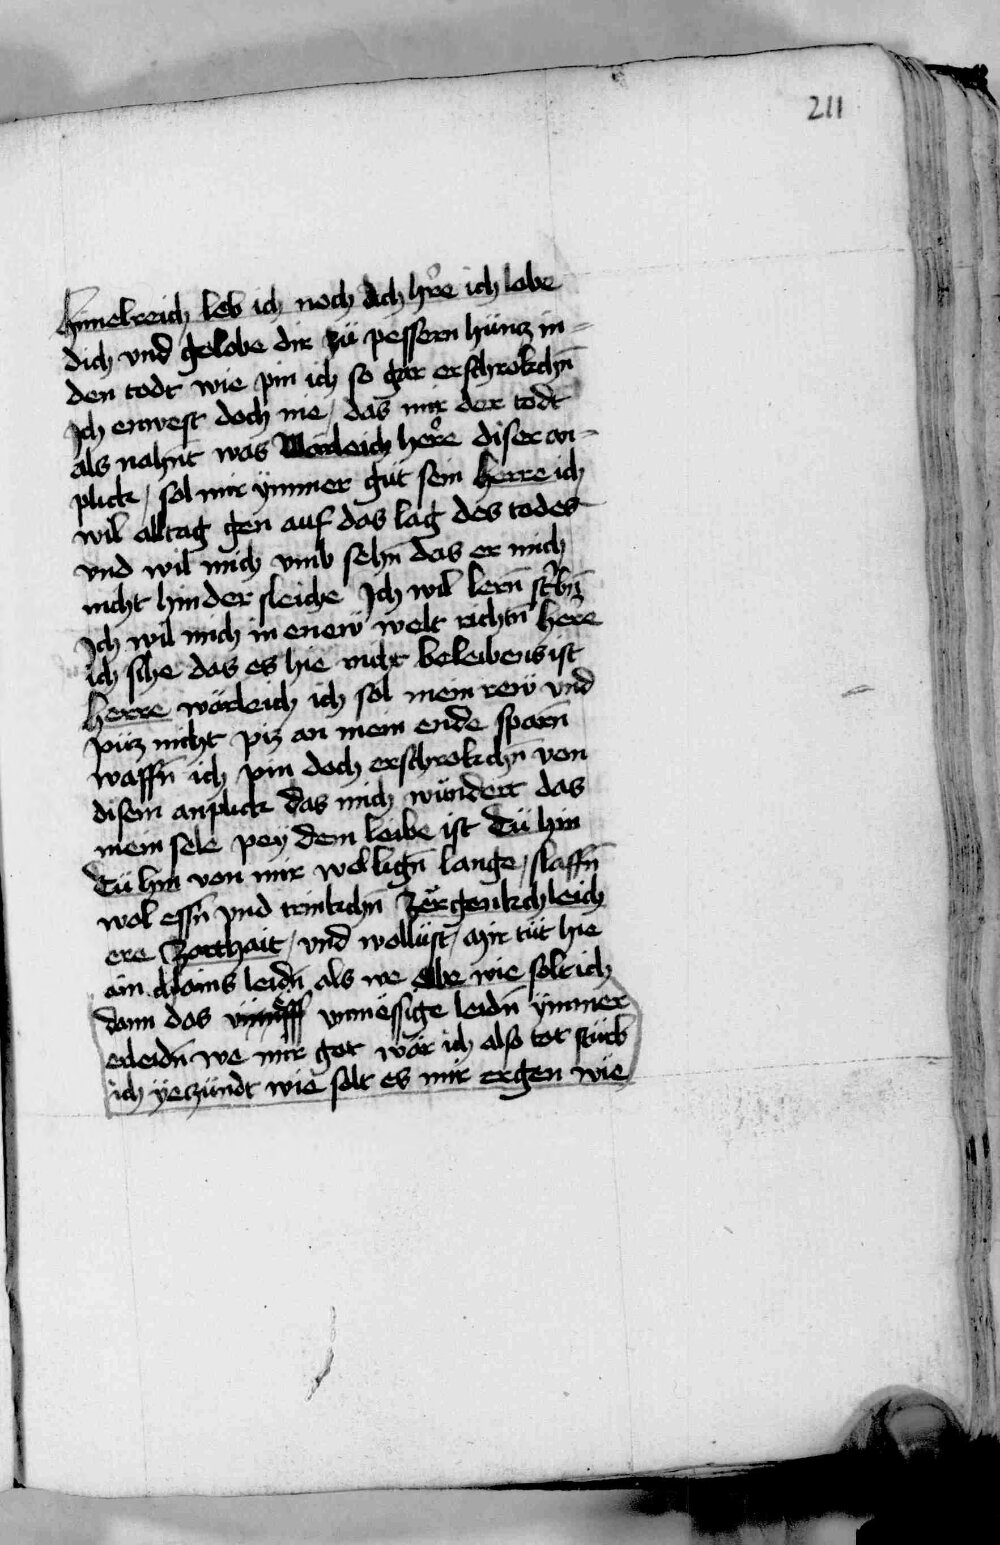 211
himelreich leb ich noch ach hre ich lobe
dich vnd gelobe dir zü pessern hüntz in =
den todt wie pin ich so gar erschrokchn̄
Ich enwest doch nie / das mir der todt
als nahnt was Wärleich here diser an =
plick / sol mir ÿmmer güt sein herre ich
wil alltag gen auf das lag des todes
vnd wil mich vmb sehn̄ das er mich
nicht hinder sleiche Ich wil lern̄ st̉bn̄
Ich wil mich in enew̄ welt richtn̄ here
ich siche das es hie nicht beleibens ist
herre wärleich ich sol mein rew̄ vnd
püz nicht piz an mein ende sparn̄
waffn̄ ich pin doch erschrokchn̄ von
disem anplick das mich wündert das
mein sele pey dem leibe ist Tü hin
Tü hin von mir wol lign̄ lange / slaffn̄
wol essn̄ vnd trinkchn̄ zergenkchleich
ere zartthait / vnd wollüst / mir tüt hie
ain chlains leidn̄ als we wie solt ich
dann das vnmässige leidn̄ ÿmmer
erleidn̄ we mir got wär ich also tot stürb
ich yeczündt wie solt es mir ergen wie